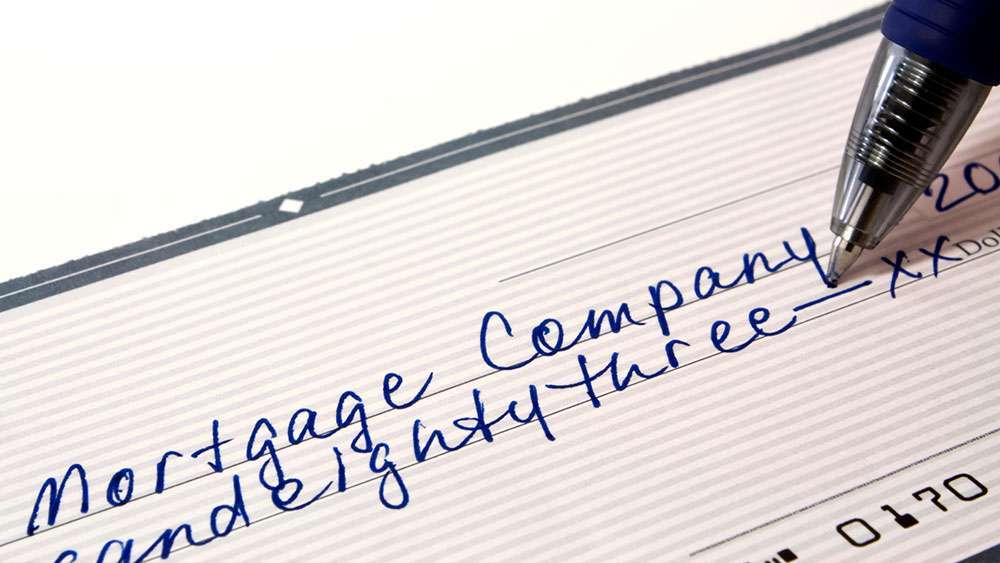 Mortgage Company 20
sand eighty three — xx Dol
0170